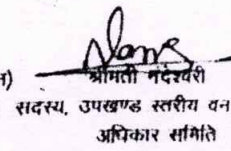 श्रीमती नंदेश्वरी
सदस्य, उपखण्ड स्तरीय वन
अधिकार समिति